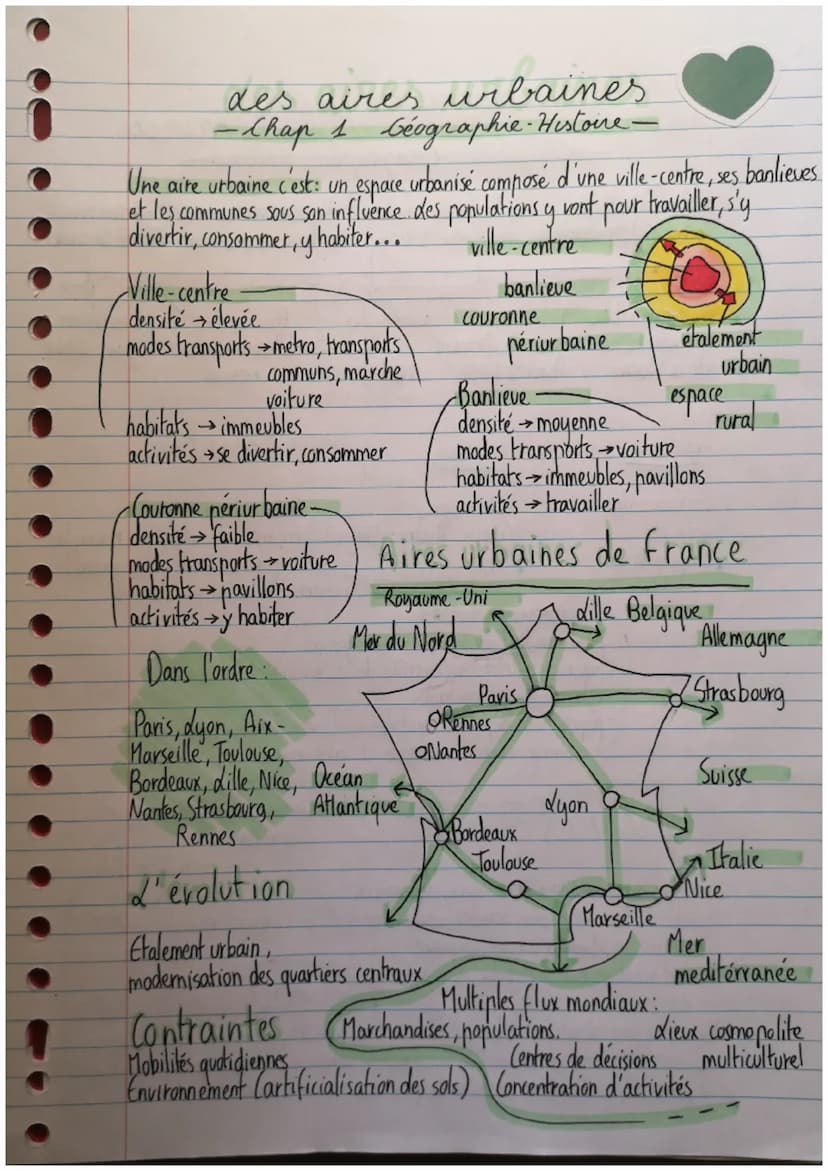 Les aires urbaines
- Chap 1 Géographie-Histoire -
Une aire urbaine c'est: un espace urbanisé composé d'une ville-centre, ses banlieues
et les communes sous son influence. Les populations y vont pour travailler, s'y
divertir, consommer, y habiter...
ville-centre
banlieue
couronne
périurbaine
étalement
urbain
espace
rural
Ville-centre
densité → élevée
modes transports → metro, transports
communs, marche
voiture
habitats → immeubles
activités → se divertir, consommer
Banlieue
densité → moyenne
modes transports → voiture
habitats → immeubles, pavillons
activités → travailler
Couronne périurbaine
densité → faible
modes transports → voiture
habitats → pavillons
activités → y habiter
Aires urbaines de France
Royaume-Uni
Mer du Nord
Lille Belgique
Allemagne
Paris
Strasbourg
Rennes
Nantes
Océan
Atlantique
Lyon
Suisse
Bordeaux
Toulouse
Italie
Nice
Marseille
Mer
meditérranée
Dans l'ordre :
Paris, Lyon, Aix-
Marseille, Toulouse,
Bordeaux, Lille, Nice,
Nantes, Strasbourg,
Rennes
L'évolution
Etalement urbain,
modernisation des quartiers centraux
Contraintes
Mobilités quotidiennes
Environnement (artificialisation des sols)
Multiples flux mondiaux :
Marchandises, populations.
Lieux cosmopolite
multiculturel
Centres de décisions
Concentration d'activités